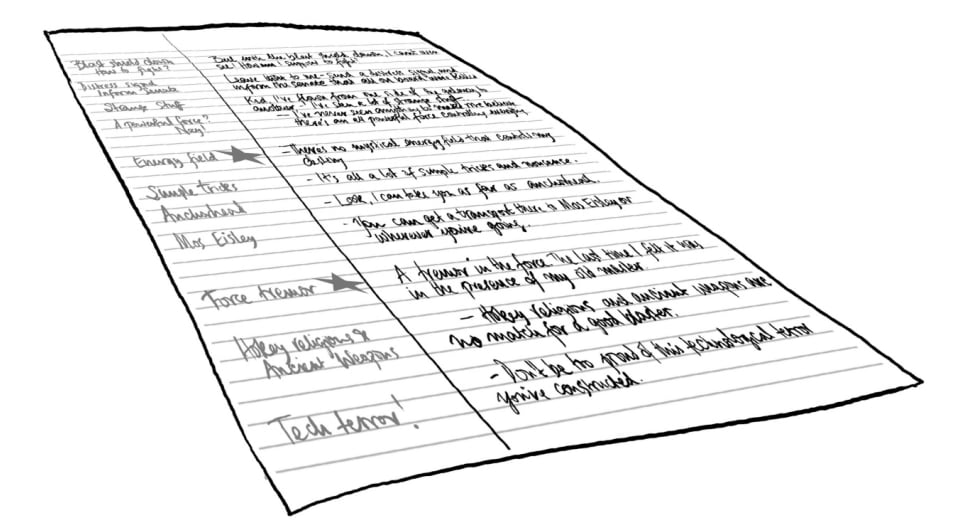 Blast shield down
How to fight?
Distress signal
Inform Senate
Strange Stuff
A powerful force?
Nay!
Energy field
Simple tricks
Anchorhead
Mos Eisley
Force tremor
Hokey religions &
Ancient Weapons
Tech terror!
But with the blast shield down, I can't even
see! How am I suppose to fight?
Leave that to me. Send a distress signal and
inform the senate that all on board were killed
Kid, I've flown from one side of the galaxy to
another. I've seen a lot of strange stuff
- I've never seen anything to make me believe
there's an all powerful force controlling everything
- There's no mystical energy field that controls my
destiny
- It's all a lot of simple tricks and nonsense.
- Look, I can take you as far as anchorhead.
- You can get a transport there to Mos Eisley or
wherever you're going.
A tremor in the force. The last time I felt it was
in the presence of my old master.
- Hokey religions and ancient weapons are
no match for a good blaster.
- Don't be too proud of this technological terror
you've constructed.